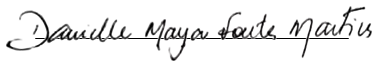 Danielle Maya Fontes Martins